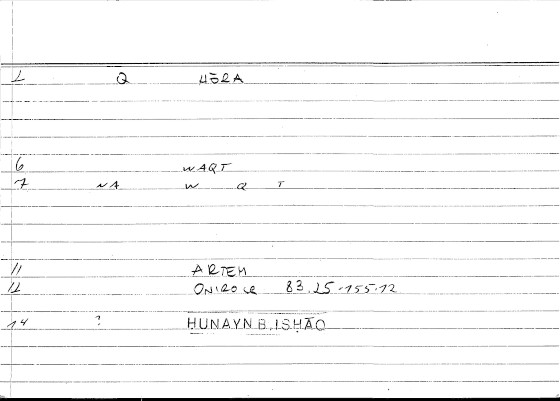 1 Q ḤŌRA
6 WAQT
7 NA W Q T
11 ARTEM
12 ONIROCR 83.25-155.12
14 ? HUNAYN B. ISHĀQ